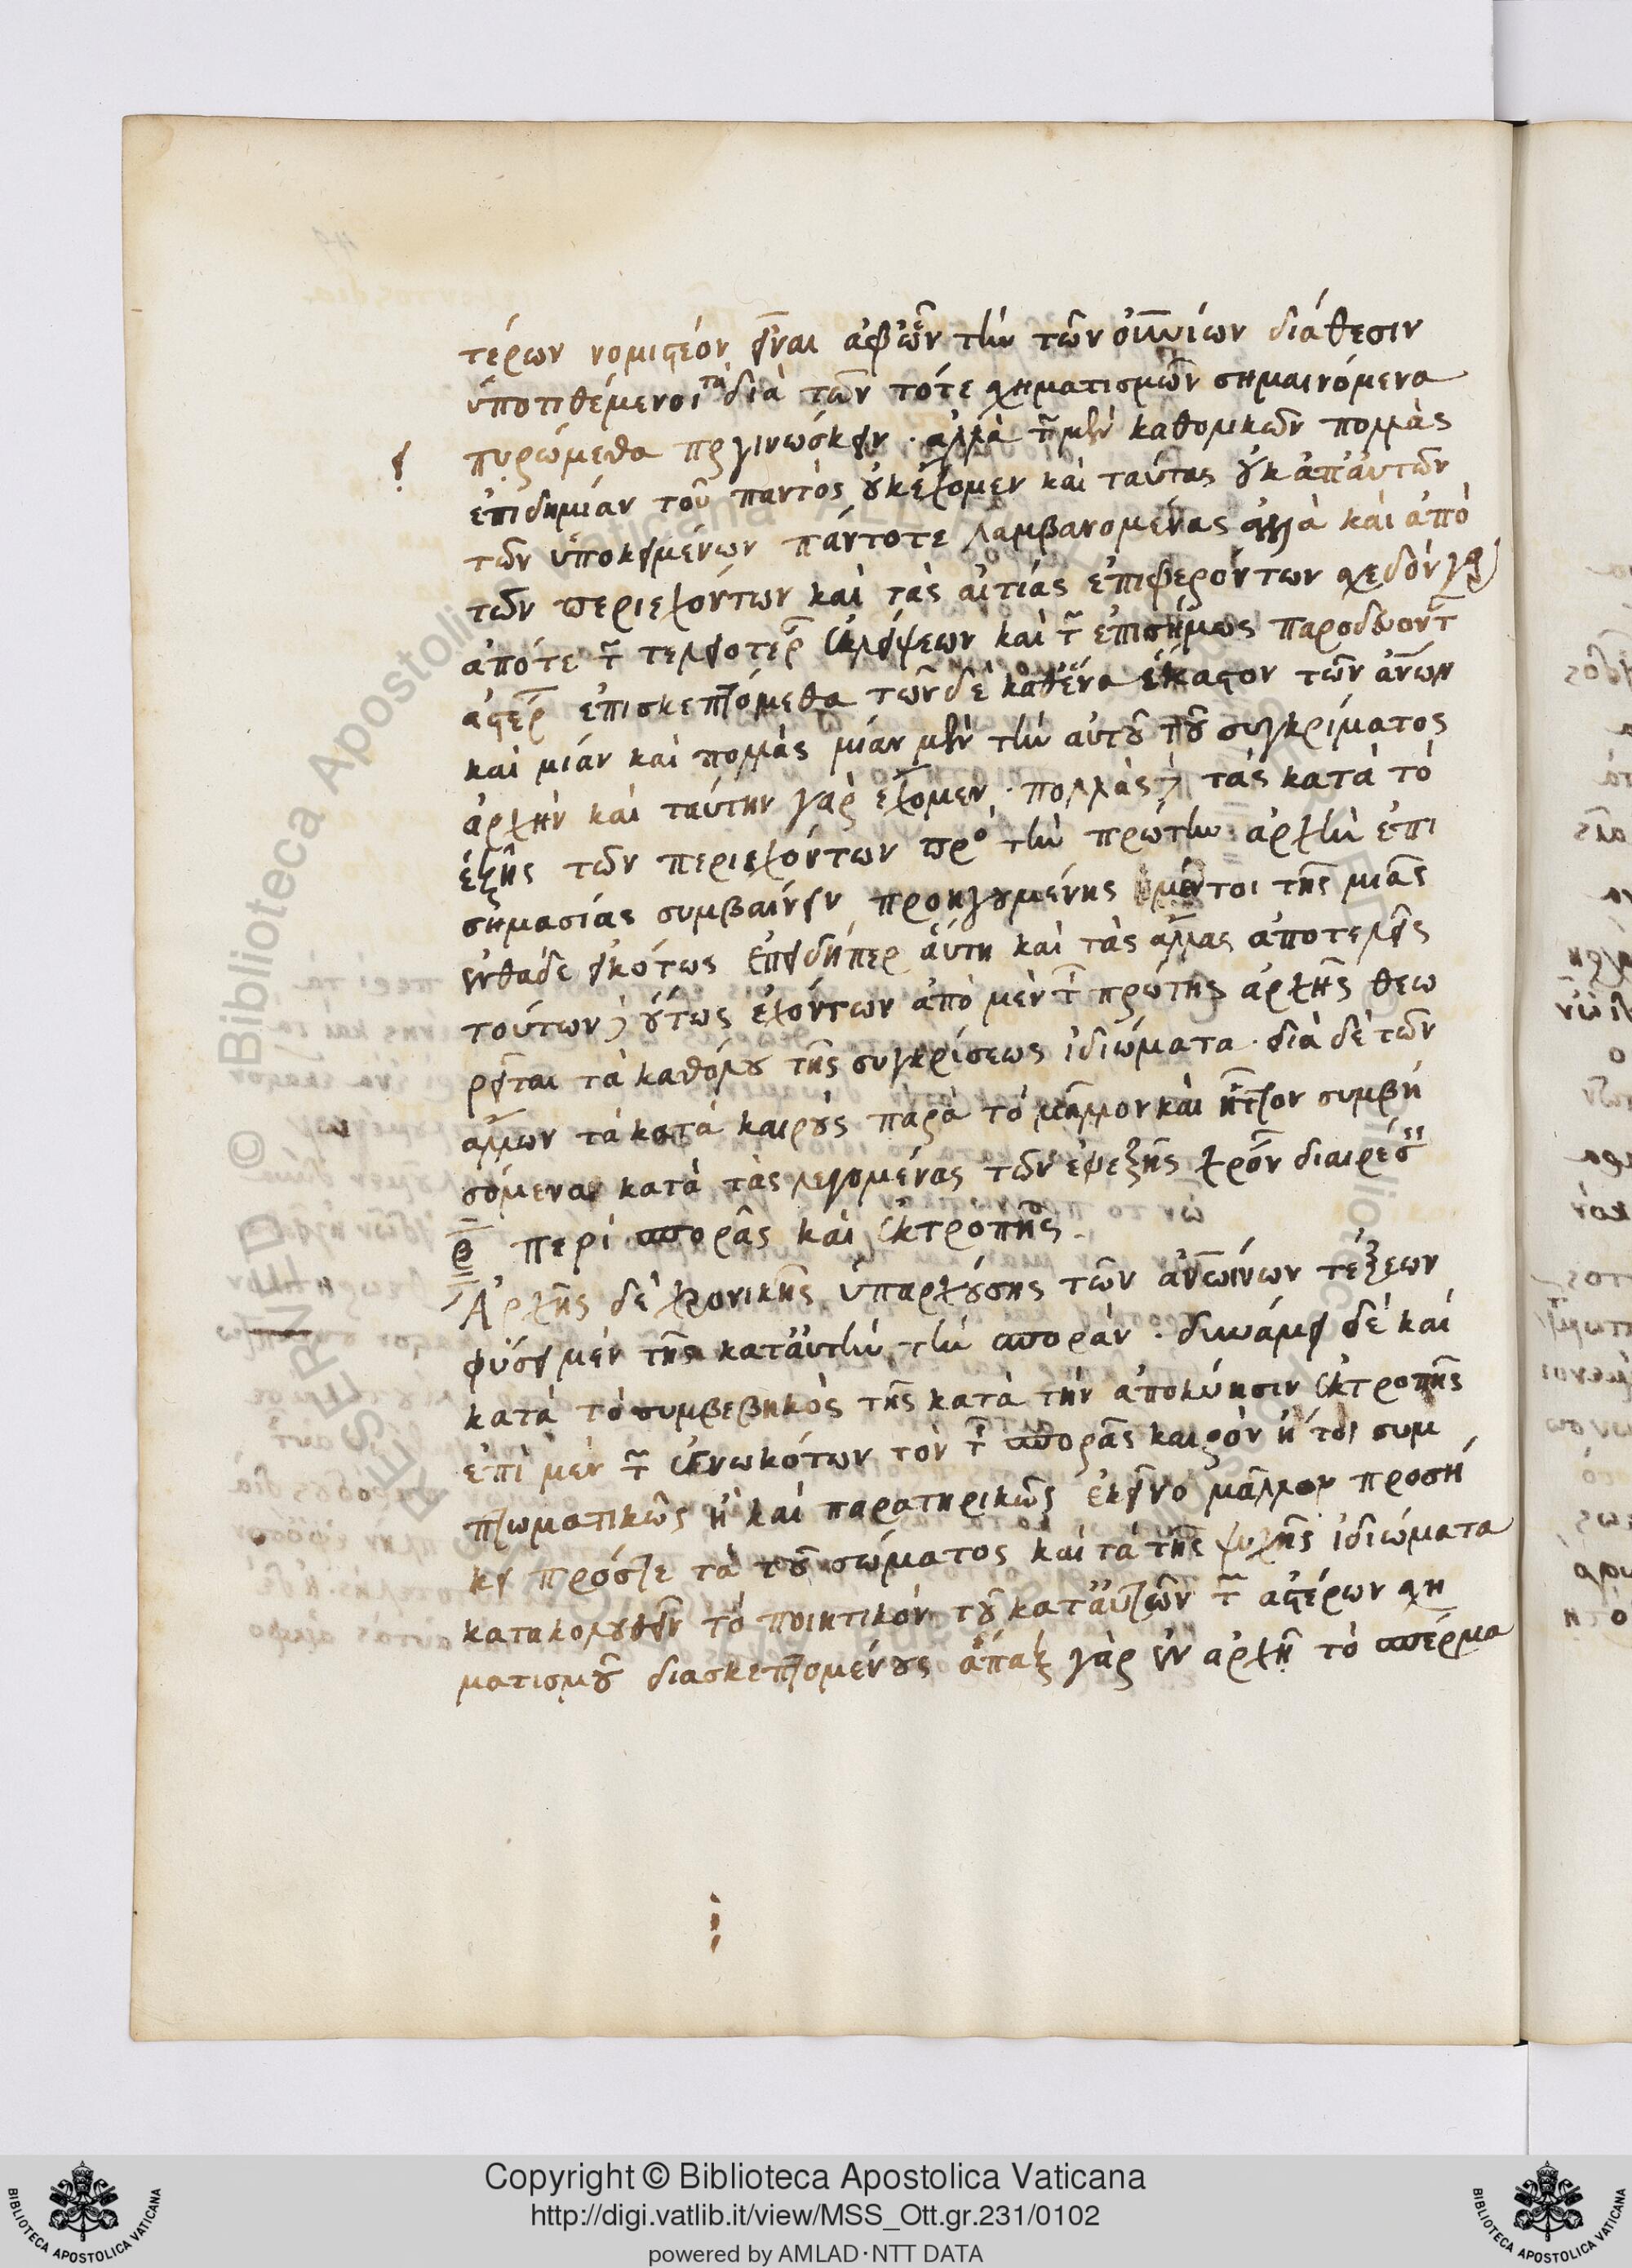 τέρων νομιστέον εἶναι ἀφ' ὧν τὴν τῶν οὐρανίων διάθεσιν
ὑποτιθέμενοι τὰ διὰ τῶν τότε σχηματισμῶν σημαινόμενα
πειρώμεθα προγινώσκειν · ἀλλὰ τῶν μὲν καθολικῶν πολλὰς
ἐπιδημίαν τοῦ παντὸς οὐκ ἔχομεν καὶ ταύτας οὐκ ἀπ' αὐτῶν
τῶν ὑποκειμένων πάντοτε λαμβανομένας ἀλλὰ καὶ ἀπὸ
τῶν περιεχόντων καὶ τὰς αἰτίας ἐπιφερόντων σχεδὸν γὰρ
ἀπό τε τῶν τελειοτέρων ἐκλείψεων καὶ τῶν ἐπισήμως παροδευόντων
ἀστέρων ἐπισκεπτόμεθα τῶν δὲ καθ' ἕνα ἕκαστον τῶν ἀνθρώπων
καὶ μίαν καὶ πολλὰς μίαν μὲν τὴν αὐτοῦ τοῦ συγκρίματος
ἀρχὴν καὶ ταύτην γὰρ ἔχομεν · πολλὰς δὲ τὰς κατὰ τὸ
ἑξῆς τῶν περιεχόντων πρὸς τὴν πρώτην ἀρχὴν ἐπι
σημασίας συμβαίνειν προηγουμένης μέντοι τῆς μιᾶς
ἐνθάδε εἰκότως ἐπειδήπερ αὕτη καὶ τὰς ἄλλας ἀποτελεῖ
τούτων δὲ οὕτως ἐχόντων ἀπὸ μὲν τῆς πρώτης ἀρχῆς θεω
ρεῖται τὰ καθόλου τῆς συγκρίσεως ἰδιώματα · διὰ δὲ τῶν
ἄλλων τὰ κατὰ καιροὺς παρὰ τὸ μᾶλλον καὶ ἧττον συμβη
σόμενα κατὰ τὰς λεγομένας τῶν ἐφεξῆς χρόνων διαιρέσεις
β περὶ σπορᾶς καὶ ἐκτροπῆς
Ἀρχῆς δὲ χρονικῆς ὑπαρχούσης τῶν ἀνθρωπίνων τέξεων
φύσει μὲν τῆς κατ' αὐτὴν τὴν σποράν · δυνάμει δὲ καὶ
κατὰ τὸ συμβεβηκὸς τῆς κατὰ τὴν ἀποκύησιν ἐκτροπῆς
ἐπὶ μὲν τῶν ἐγνωκότων τὸν τῆς σπορᾶς καιρὸν ἤτοι συμ
πτωματικῶς ἢ καὶ παρατηρικῶς ἐκεῖνο μᾶλλον προσή
κει πρός τε τὰ τοῦ σώματος καὶ τὰ τῆς ψυχῆς ἰδιώματα
κατακολουθεῖν τὸ ποιητικὸν τοῦ κατ' αὐτῶν τῶν ἀστέρων σχη
ματισμοῦ διασκεπτομένους ἅπαξ γὰρ ἐν ἀρχῇ τὸ σπέρμα
Copyright © Biblioteca Apostolica Vaticana
http://digi.vatlib.it/view/MSS_Ott.gr.231/0102
powered by AMLAD·NTT DATA
BIBLIOTECA APOSTOLICA VATICANA
BIBLIOTECA APOSTOLICA VATICANA